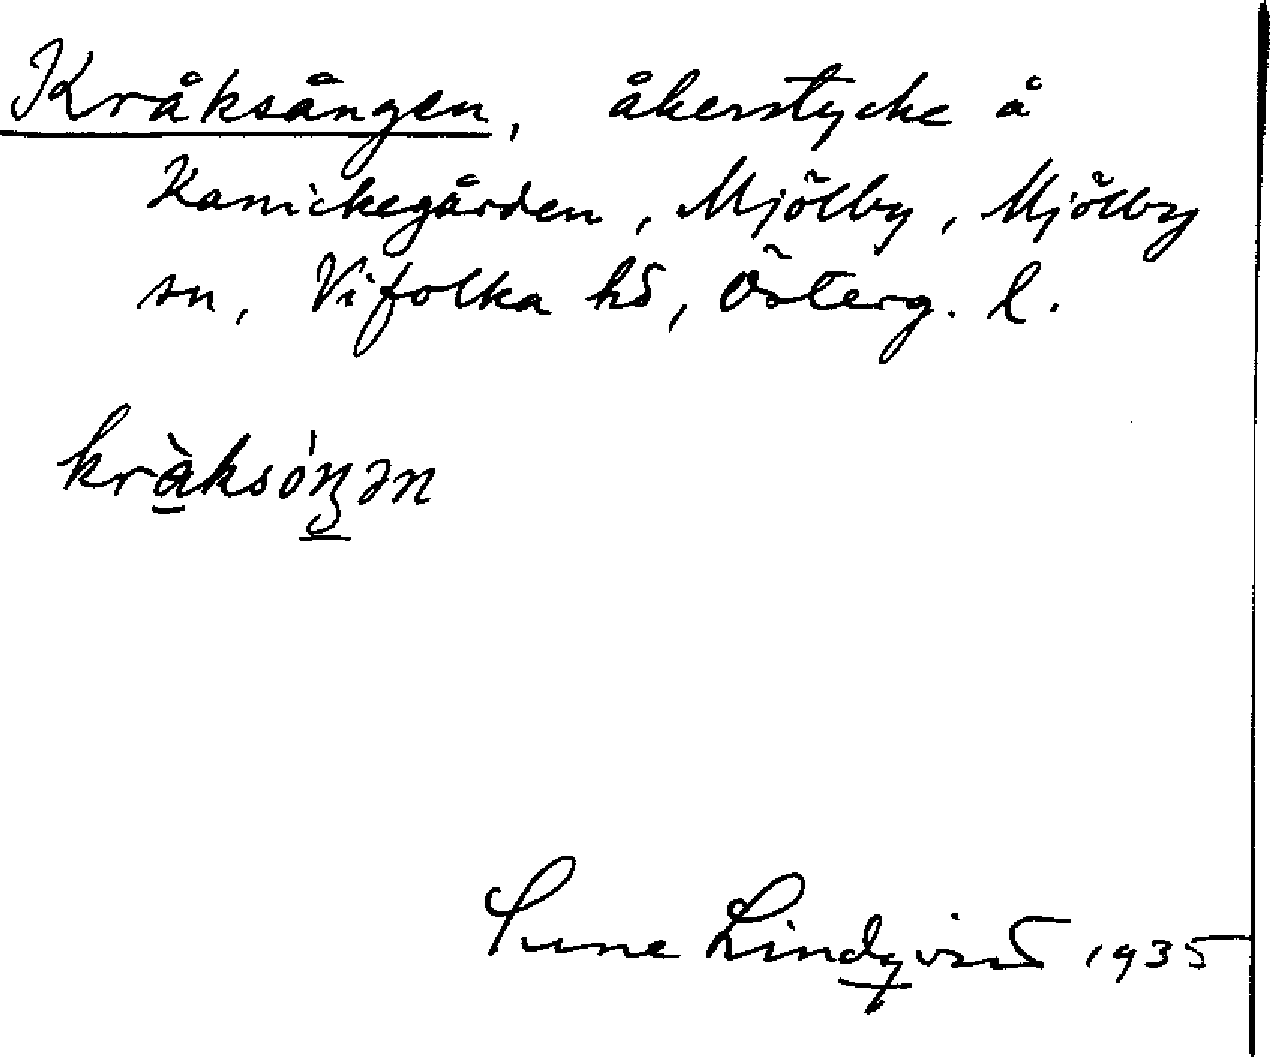 Kråksången, åkerstycke å
Kanickegården, Mjölby, Mjölby
sn, Vifolka hd, Österg. l.
kràksóŋən
Sune Lindqvist 1935